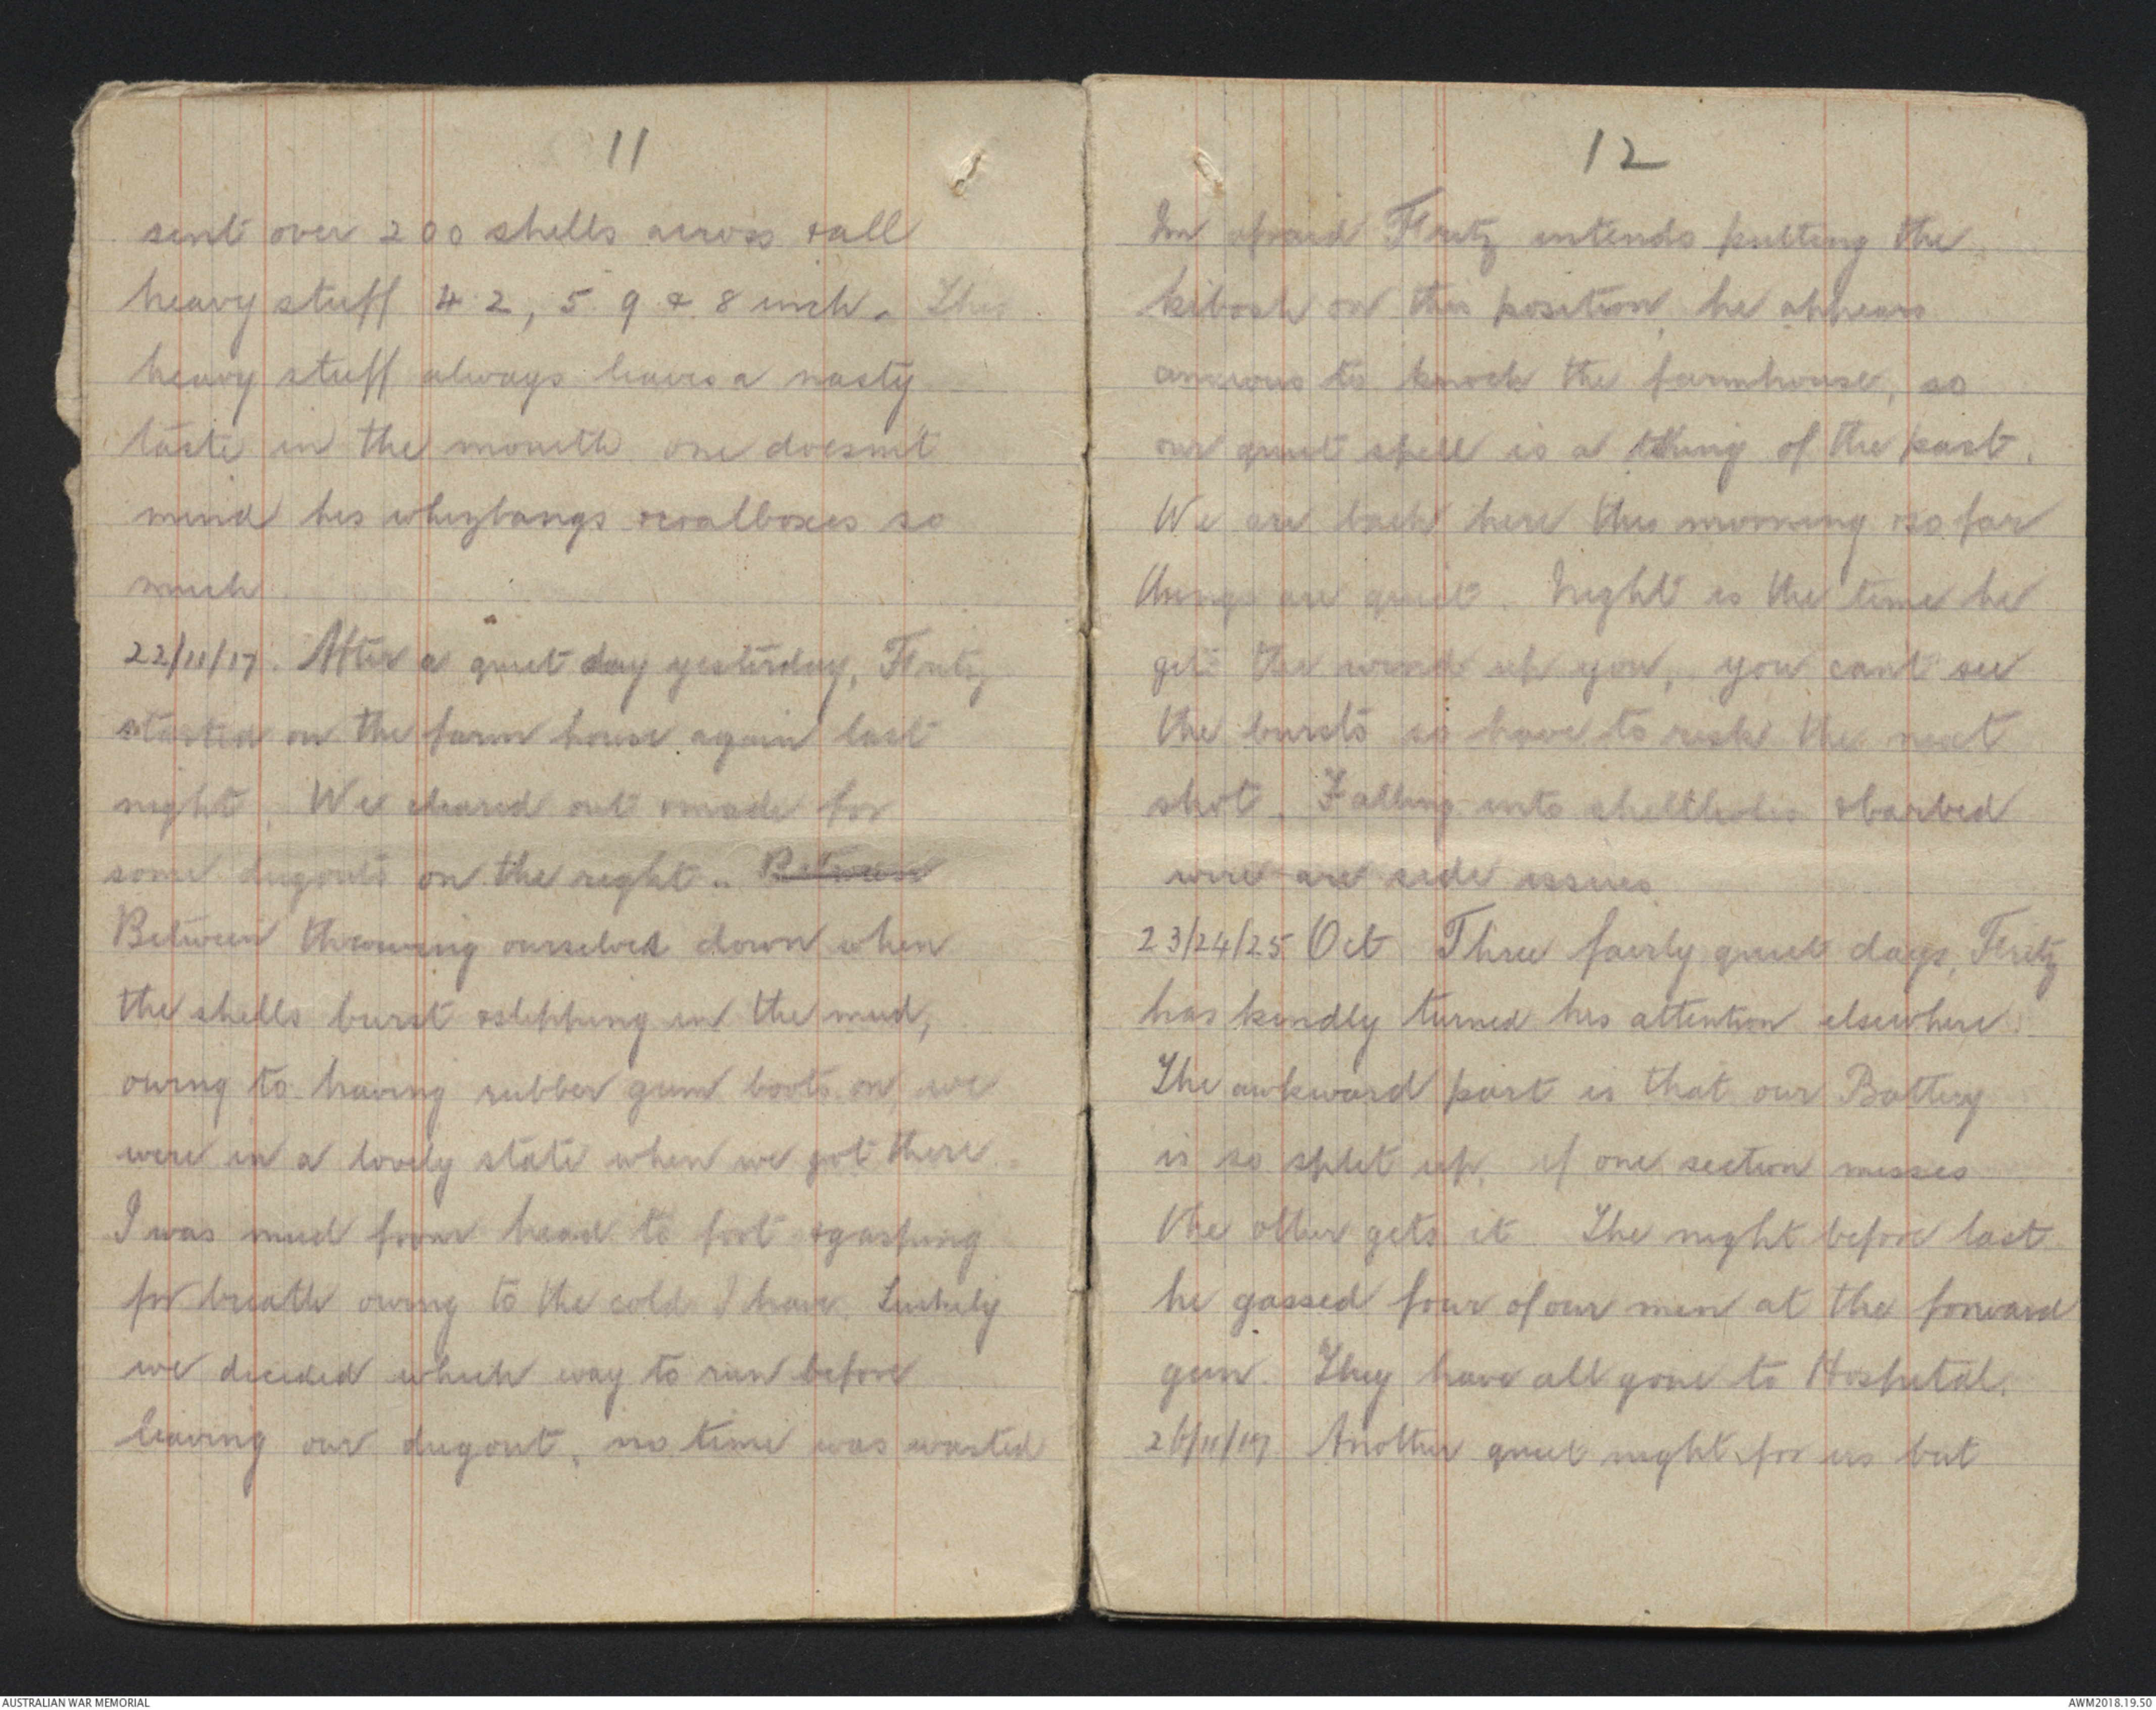 11
sent over 200 shells across & all
heavy stuff 4.2, 5.9 & 8 inch. This
heavy stuff always leaves a nasty
taste in the mouth one doesn't
mind his whizbangs & coalboxes so
much
22/11/17. After a quiet day yesterday, Fritz
started on the farm house again last
night. We cleared out & made for
some dugouts on the right. Between
Between throwing ourselves down when
the shells burst & slipping in the mud,
owing to having rubber gum boots on, we
were in a lovely state when we got there
I was mud from head to foot & gasping
for breath owing to the cold I have. Luckily
we decided which way to run before
leaving our dugout, no time was wasted
12
Im afraid Fritz intends putting the
kibosh on this position, he appears
anxious to knock the farmhouse, so
our quiet spell is a thing of the past.
We are back here this morning & so far
things are quiet. Night is the time he
gets the wind up you, you cant see
the bursts so have to risk the next
shot. Falling into shellholes & barbed
wire are side issues
23/24/25 Oct Three fairly quiet days, Fritz
has kindly turned his attention elsewhere.
The awkward part is that our Battery
is so split up, if one section misses
the other gets it. The night before last
he gassed four of our men at the forward
gun. They have all gone to Hospital.
26/11/17 Another quiet night for us but
AUSTRALIAN WAR MEMORIAL
AWM2018.19.50